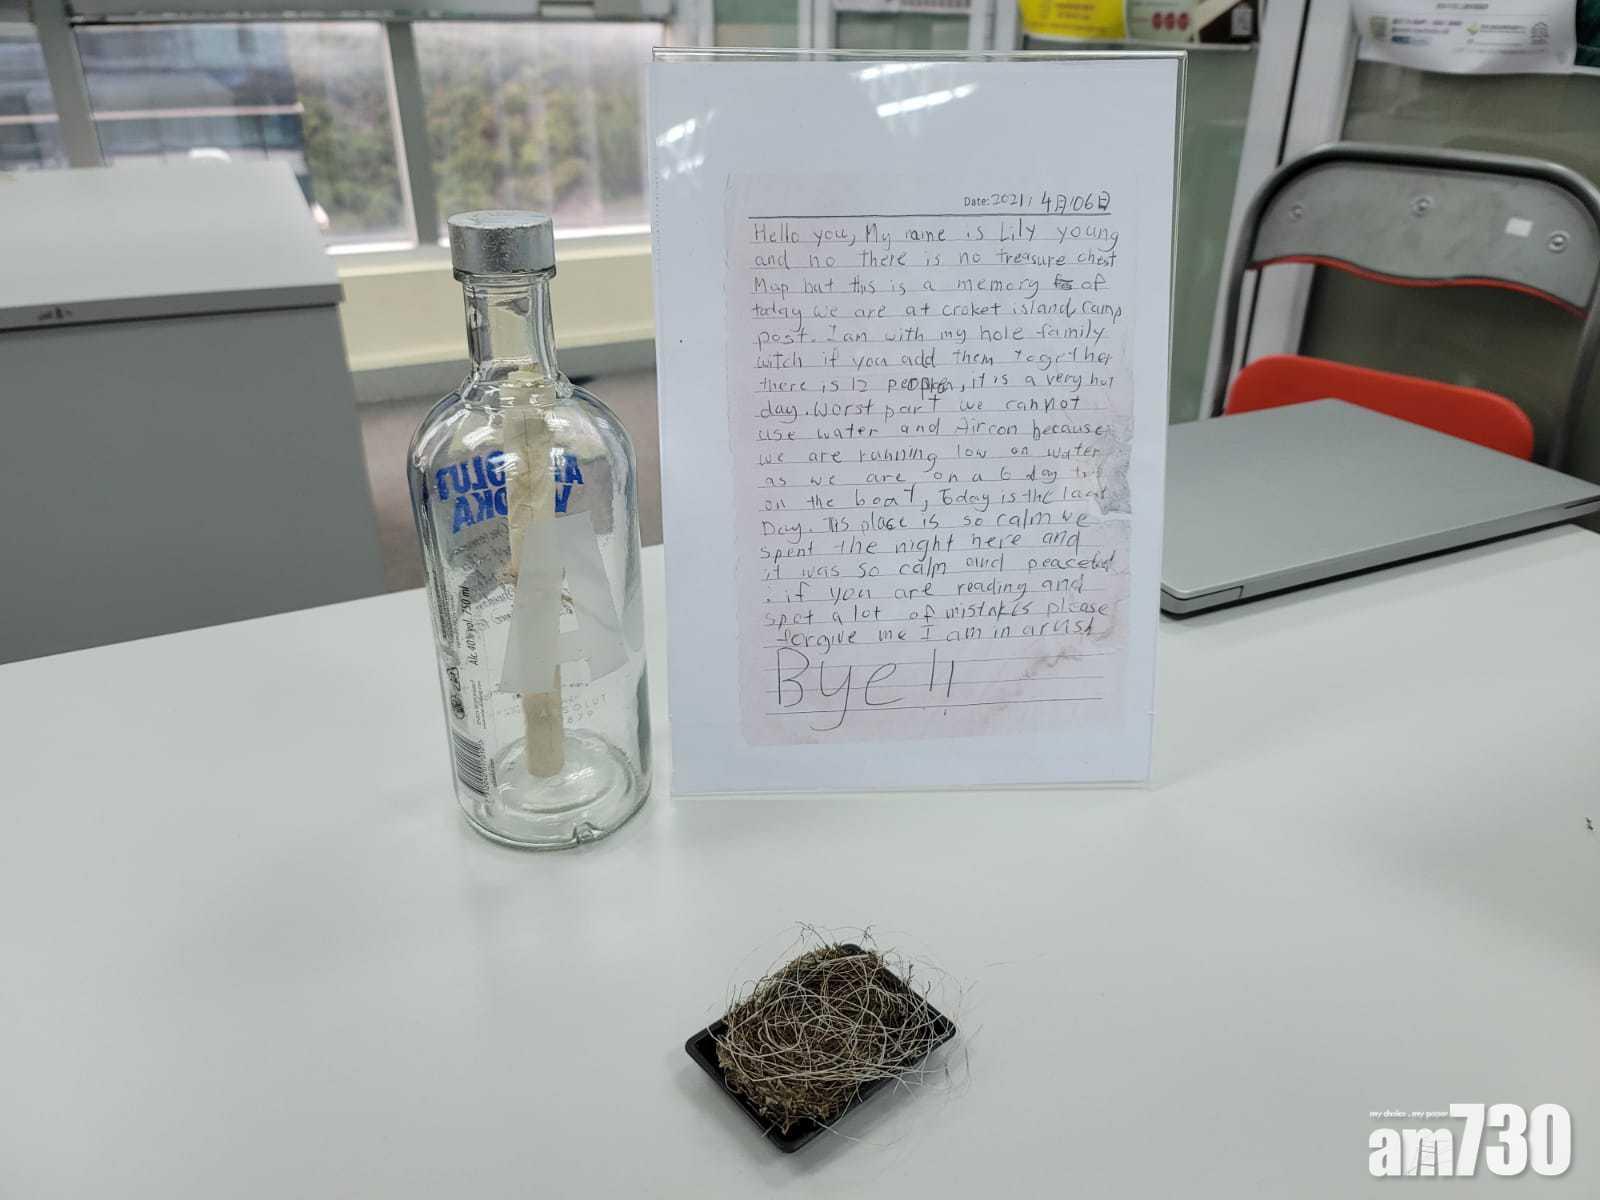 Date: 2021, 4月06日
Hello you, My name is Lily young
and no there is no treasure chest
Map but this is a memory of
today we are at croket island, camp
post. I am with my hole family
witch if you add them together
there is 12 people, it is a very hot
day. Worst part we cannot
use water and Aircon because
we are running low on water
as we are on a 6 day
on the boat, Today is the last
Day. This place is so calm we
spent the night here and
it was so calm and peaceful
. if you are reading and
spot a lot of mistakes please
forgive me I am in artist
Bye!!
ABSOLUT
VODKA
A
Alc. 40% vol. 750 ml
my choice . my paper
am730